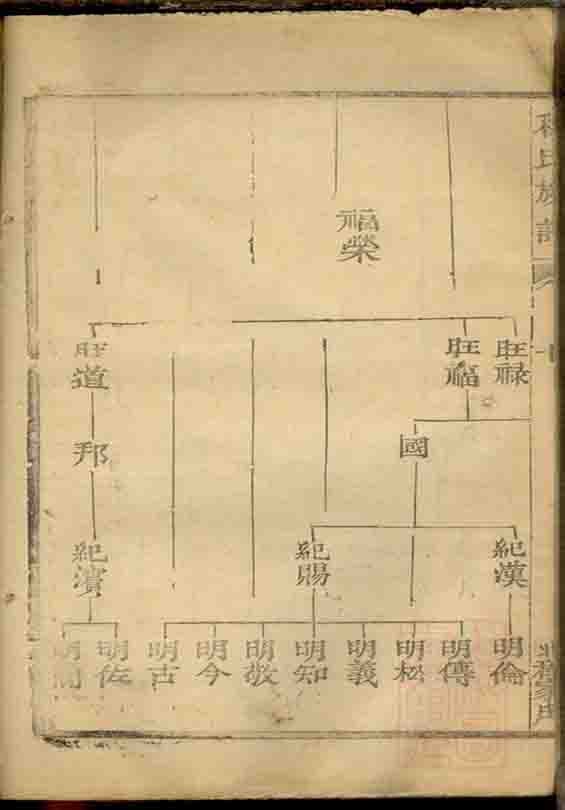 氏族譜
福榮
旺祿
旺福
旺道
國
邦
紀漢
紀賜
紀濱
明倫
明傳
明松
明義
明知
明敬
明今
明古
明佐